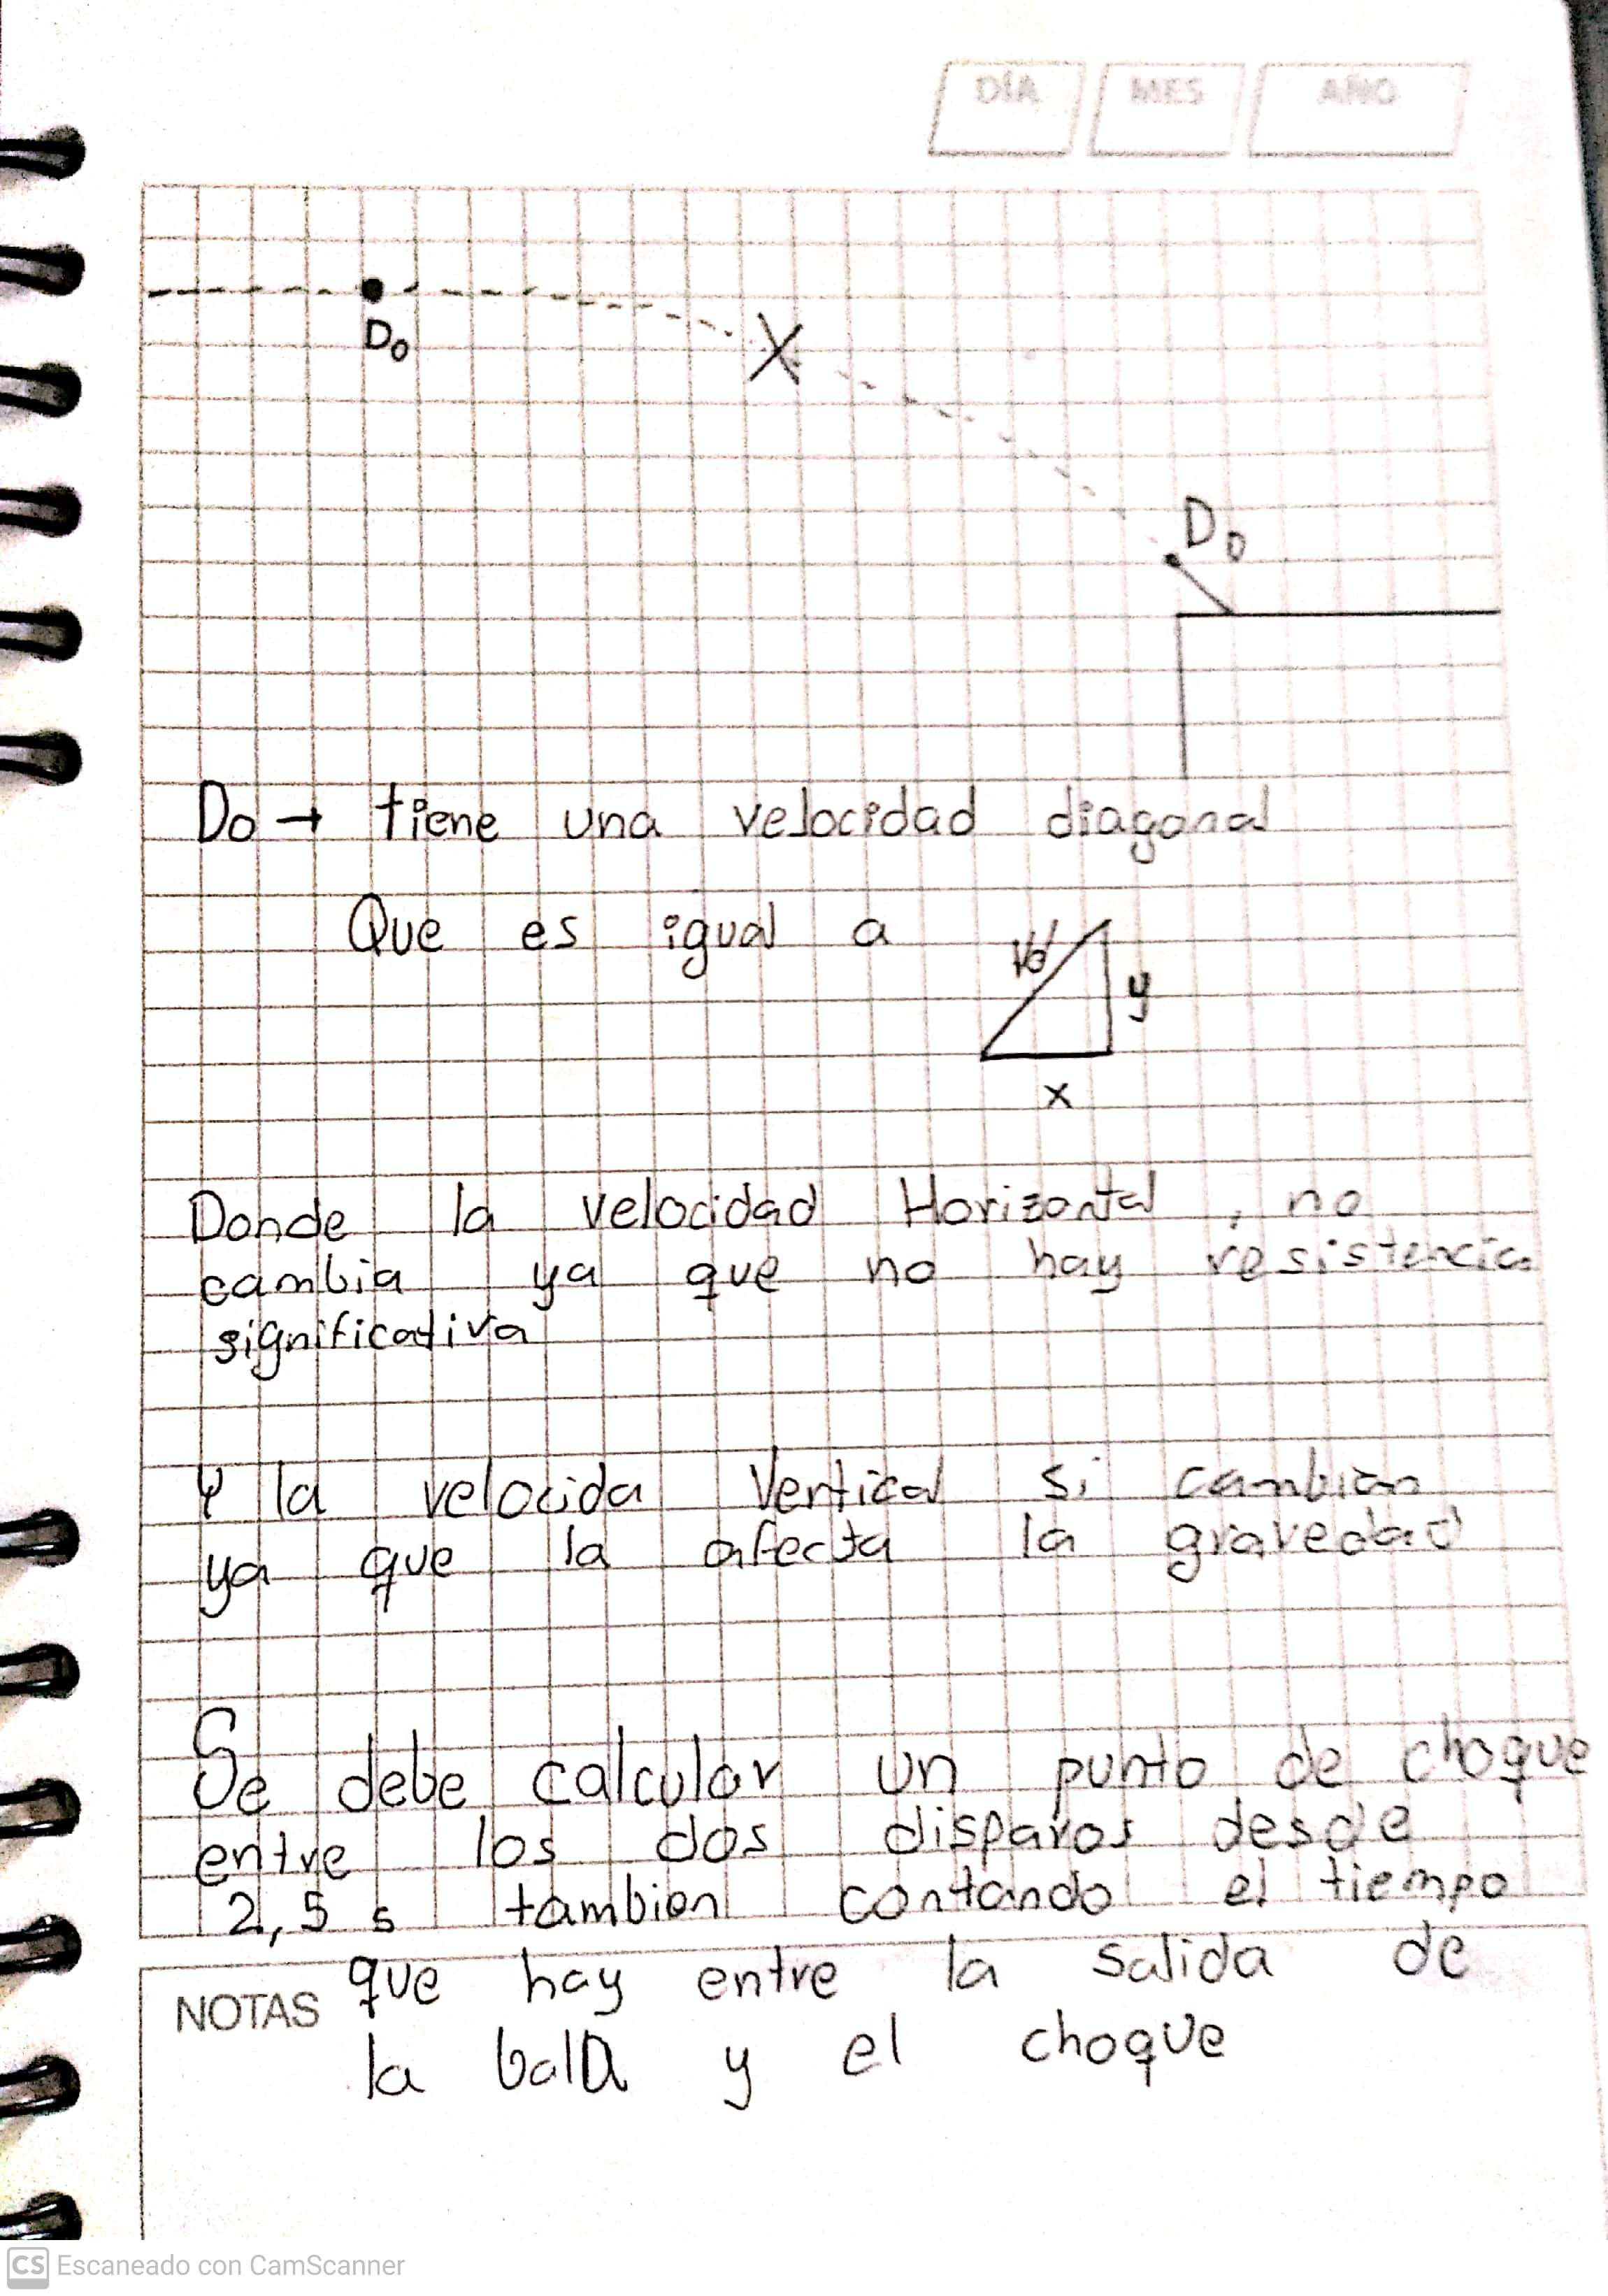 DÍA MES AÑO
Do
X
Do
Do → tiene una velocidad diagonal
Que es igual a
Vd
y
x
Donde la velocidad Horizontal, no
cambia ya que no hay resistencia
significativa
Y la velocida Vertical si cambian
ya que la afecta la gravedad
Se debe calcular un punto de choque
entre los dos disparos desde
2,5 s tambien contando el tiempo
que hay entre la salida de
NOTAS
la bala y el choque
CS Escaneado con CamScanner